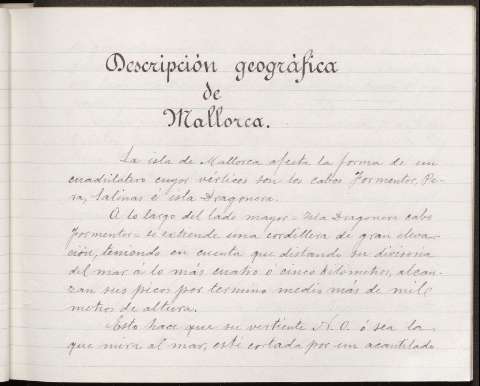 Descripción geográfica
de
Mallorca.
La isla de Mallorca afecta la forma de un
cuadrilatero cuyos vértices son los cabos Formentor, Pe-
ra, Salinas é isla Dragonera.
A lo largo del lado mayor = Isla Dragonera cabo
Formentor = se extiende una cordillera de gran eleva-
ción, teniendo en cuenta que distando su divisoria
del mar á lo más cuatro o cinco kilometros, alcan-
zan sus picos por termino medio más de mil
metros de altura.
Esto hace que su vertiente N.O. ó sea la
que mira al mar, esté cortada por un acantilado